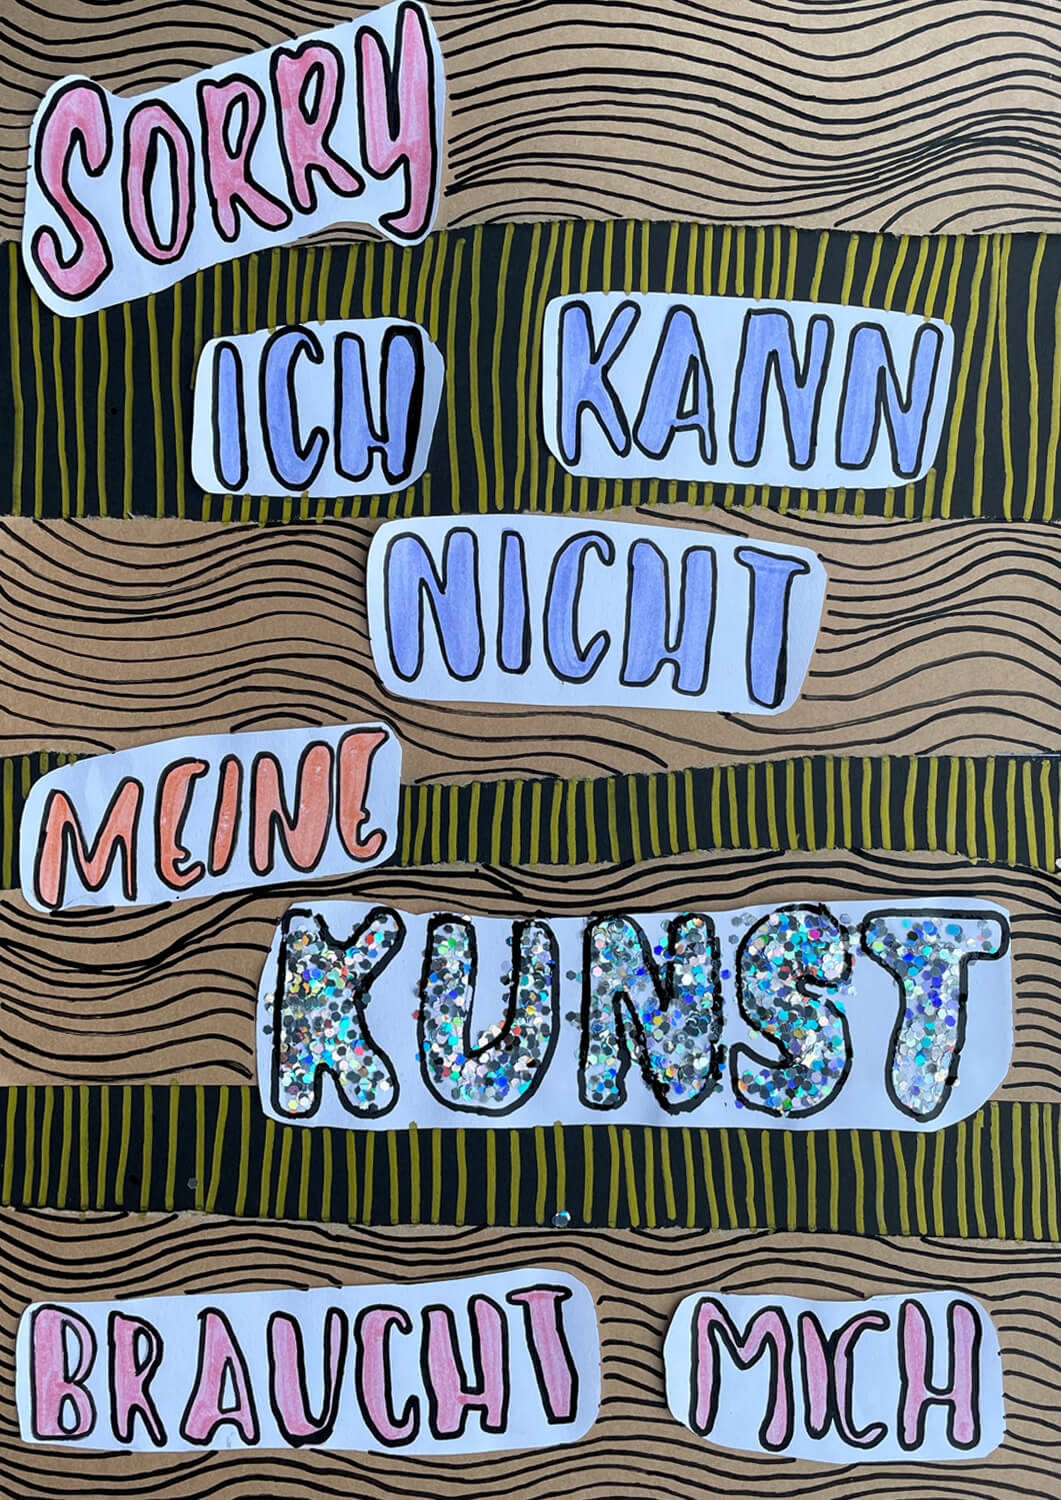 SORRY
ICH KANN
NICHT
MEINE
KUNST
BRAUCHT MICH